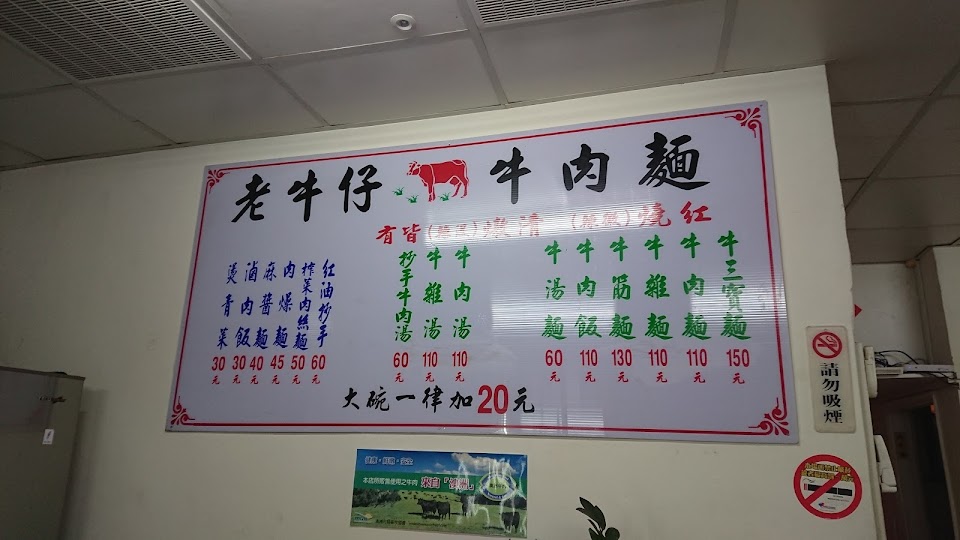 老牛仔 牛肉麵
紅燒(麻辣) 清燉(麻辣)皆有
牛三寶麵 150元
牛肉麵 110元
牛雜麵 110元
牛筋麵 130元
牛肉飯 110元
牛湯麵 60元
牛肉湯 110元
牛雜湯 110元
抄手牛肉湯 60元
紅油抄手 60元
榨菜肉絲麵 50元
肉燥麵 45元
麻醬麵 40元
滷肉飯 30元
燙青菜 30元
大碗一律加20元
請勿吸煙
本店所使用之牛肉 來自「澳洲」